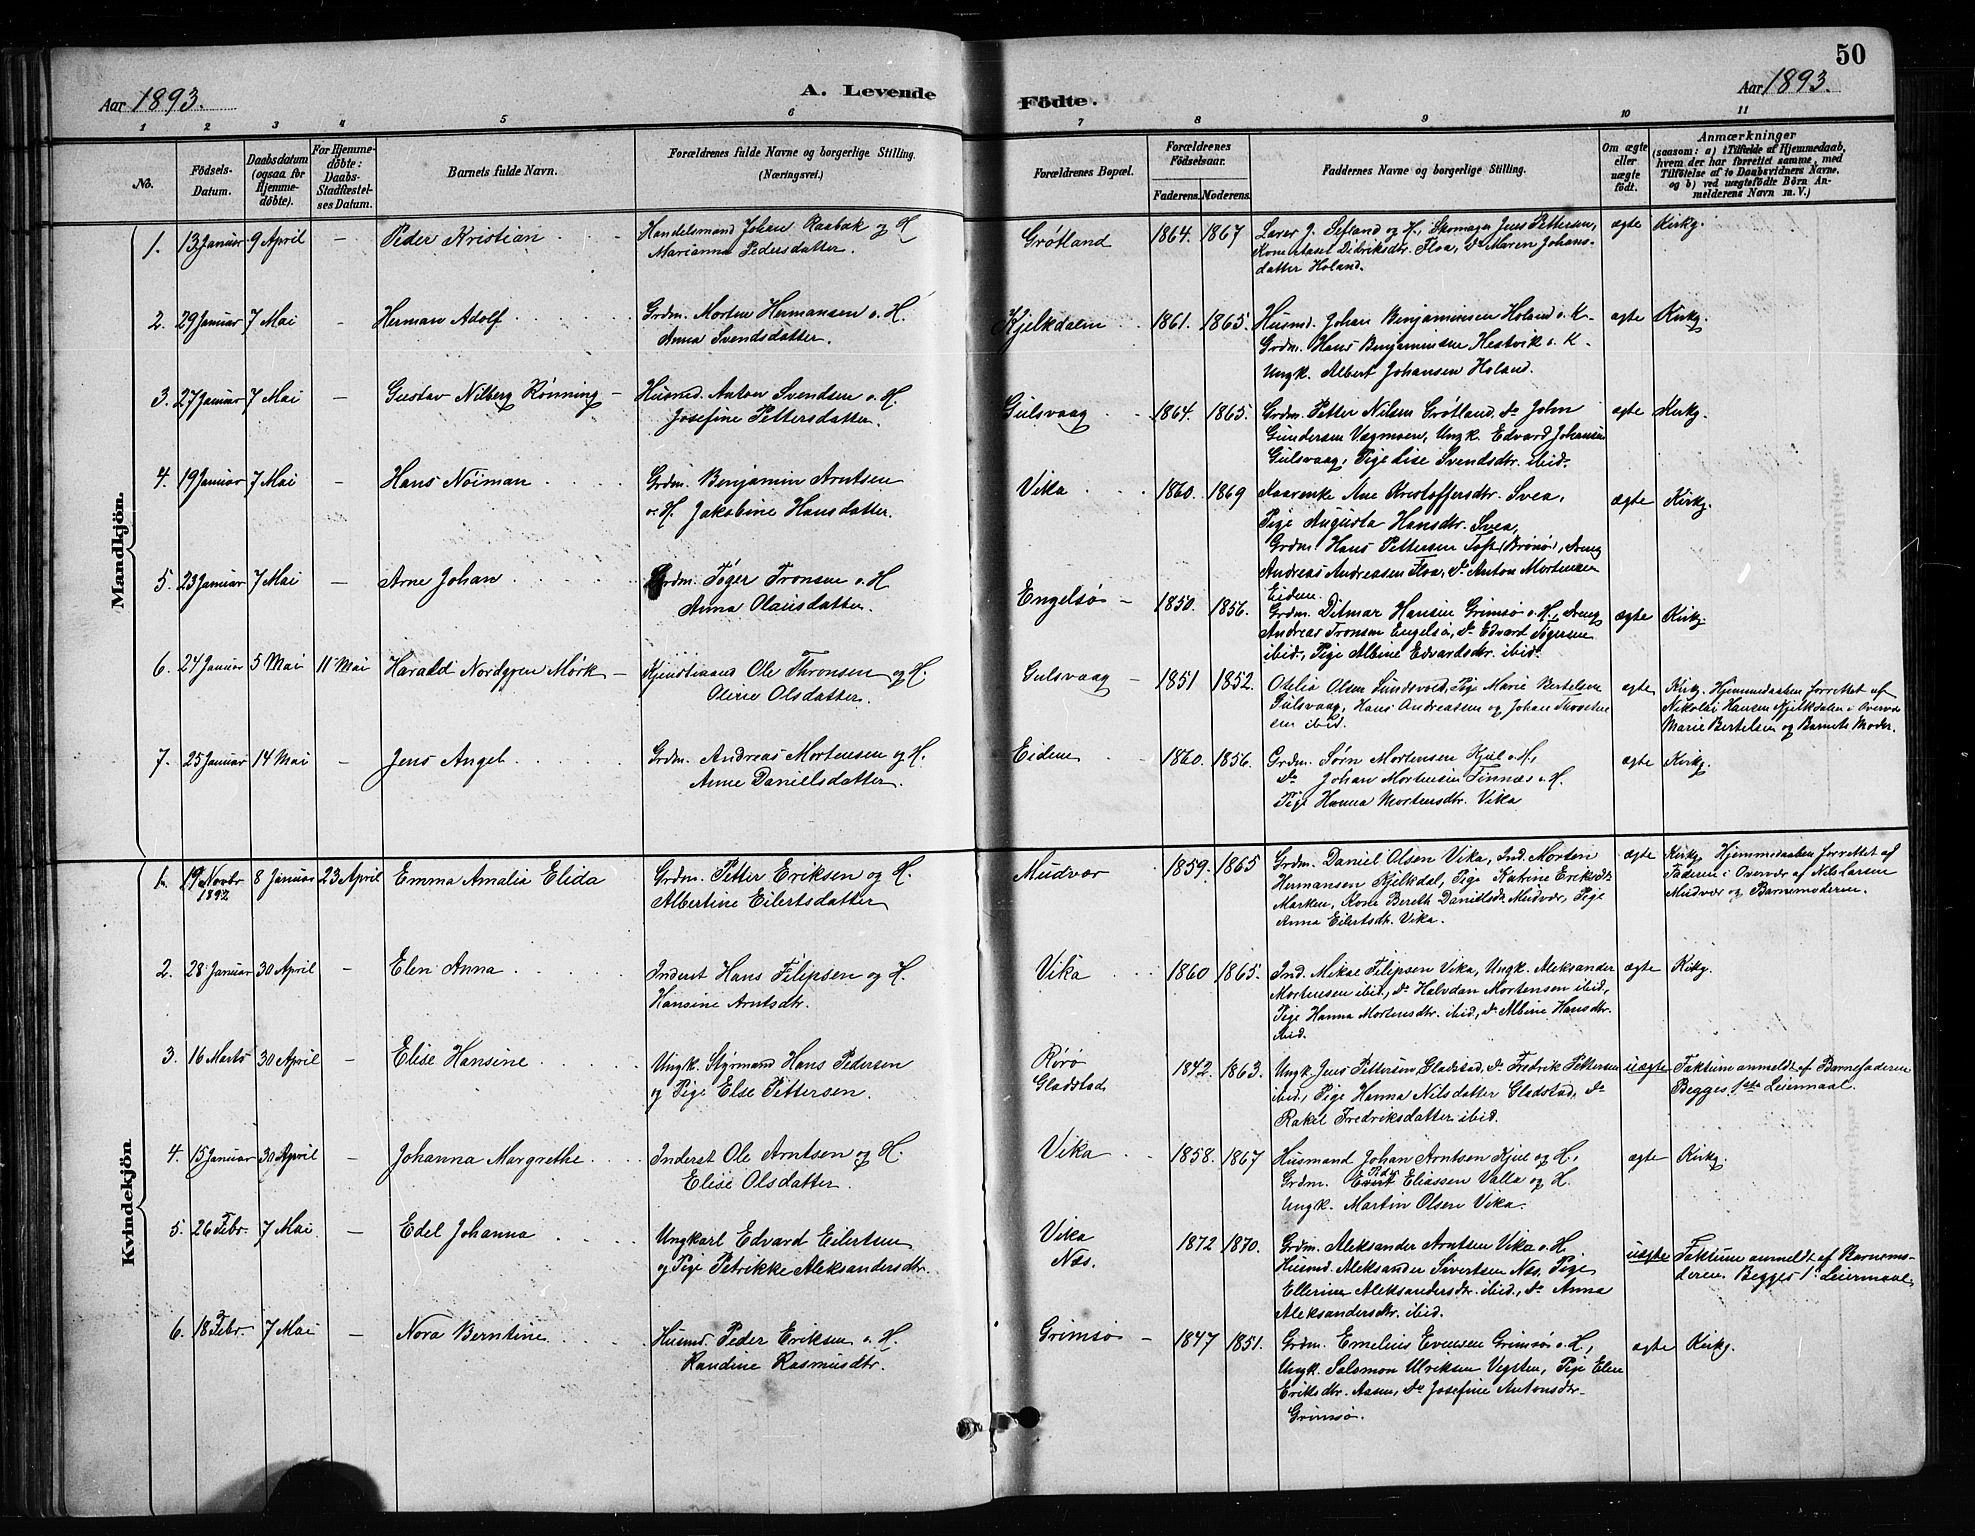 50
Aar 1893.
A. Levende
Födte.
Aar 1893.
1 2 3 4 5 6 7 8 9 10 11
No.
Födsels-Datum.
Daabsdatum (ogsaa for Hjemme-döbte).
For Hjemme-döbte: Daabs-Stadfæstel-ses Datum.
Barnets fulde Navn.
Forældrenes fulde Navne og borgerlige Stilling.
(Næringsvei.)
Forældrenes Bopæl.
Forældrenes Födselsaar.
Faderens. Moderens.
Faddernes Navne og borgerlige Stilling.
Om ægte eller uægte födt.
Anmærkninger
(saasom: a) i Tilfælde af Hjemmedaab,
hvem der har forrettet samme, med
Tilföielse af to Daabsvidners Navne,
og b) ved uægtefödte Börn An-
melderens Navn m. V.)
Mandkjön.
1. 13 Januar 9 April – Peder Kristian
Handelsmand Johan Raabak og H
Marianna Pedersdatter.
Grøtland 1864. 1867
Lærer J. Sefland og H, Skomager Jens Pettersen,
Kone Didriksdtr. Floa, Do Maren Johans-
datter Holand.
ægte Kirkg.
2. 29 Januar 7 Mai – Herman Adolf
Grdm. Morten Hermansen o. H.
Anna Svendsdatter.
Kjelkdalen 1861. 1865.
Husmd. Johan Benjaminsen Holand o. K.
Grdm. Hans Benjaminsen Hestvik o. K.
Ungk. Albert Johansen Holand.
ægte Kirkg.
3. 27 Januar 7 Mai – Gustav Nilberg Rønning –
Husmd. Anton Svendsen o. H.
Josefine Pettersdatter.
Gulsvaag 1864. 1865.
Grdm. Petter Nilsen Grøtland, do John
Gundersen Vægmoen, Ungk. Edvard Johansen
Gulsvaag, Pige Lise Svendsdtr. ibid.
ægte Kirkg.
4. 19 Januar 7 Mai – Hans Nöiman
Grdm. Benjamin Arntsen
o. H. Jakobine Hansdatter.
Vika 1860. 1869
Kaarenke Ane Kristoffersdtr. Svea,
Pige Augusta Hansdtr. Svea,
Grdm. Hans Pettersen Toft (Brönö), Dreng
Andreas Andreassen Floa, do Anton Mortensen
Eidem.
ægte Kirkg.
5. 23 Januar 7 Mai – Arne Johan
Grdm. Töger Tronsen o. H
Anna Olausdatter.
Engelsö – 1850. 1856.
Grdm. Ditmar Hansen Grimsø o. H., Dreng
Andreas Tronsen Engelsö, do Edvart Tögersen
ibid., Pige Albine Edvardsdtr. ibid.
ægte Kirkg.
6. 24 Januar 5 Mai 11 Mai Harald Nordgren Mörk –
Ole Thronsen og H.
Oline Olsdatter.
Gulsvaag – 1851 1852.
Otelia Olsen Sundsvold, Pige Marie Bertelsen
Gulsvaag, Hans Andreassen og Johan
sen ibid.
ægte Kirkg. Hjemmedaaben forrettet af
Nikolai Hansen Kjelkdalen i Overvær
Marie Bertelsen og Barnets Moder.
7. 25 Januar 14 Mai – Jens Angel
Grdm. Andreas Mortensen og H.
Anne Danielsdatter.
Eidem 1860. 1856.
Grdm. Sørn Mortensen Kjul o. H.,
do Johan Mortensen Tinnæs o. H.
Pige Hanna Mortensdtr. Vika
ægte Kirkg.
Kvindekjön
1. 19 Novbr 1892 8 Januar 23 April Emma Amalia Elida
Grdm. Petter Eriksen og H.
Albertine Eilertsdatter
Mudvær 1859. 1865
Grdm. Daniel Olsen Vika, Ind. Morten
Hermansen Kjelkdal, Pige Katrine Eriksdtr
Marken, Kone Bereth Danielsdtr Mudvær, Pige
Anna Eilertsdtr. Vika.
ægte Kirkg. Hjemmedaaben forrettet af
Faderen i Overvær af Nils Larsen
Mudvær og Barnemoderen.
2. 28 Januar 30 April – Elen Anna
Inderst Hans Filipsen og H.
Hansine Arntsdtr.
Vika 1860 1865.
Ind. Mikal Filipsen Vika, Ungk. Aleksander
Mortensen ibid., do Halvdan Mortensen ibid.,
Pige Hanna Mortensdtr. ibid, do Albine Hansdtr.
ibid.
ægte Kirkg.
3. 16 Marts 30 April – Elise Hansine
Ungk. Styrmand Hans Pedersen
og Pige Else Pettersen.
Rørø
Gladstad. 1842. 1863.
Ungk. Jens Pettersen Gladstad, do Fredrik Pettersen
ibid., Pige Hanna Nilsdatter Gladstad, do
Rakel Fredriksdatter ibid.
uægte Faktum anmeldt af Barnefaderen
Begges 1ste Leiermaal.
4. 15 Januar 30 April – Johanna Margrethe
Inderst Ole Arntsen og H.
Elise Olsdatter.
Vika 1858. 1867
Husmand Johan Arntsen Kjul og H.,
Peder
Grdm. Evert Eliassen Valla og H.
Ungk. Martin Olsen Vika.
ægte Kirkg.
5. 26 Febr. 7 Mai – Edel Johanna
Ungkarl Edvard Eilertsen
og Pige Petrikke Aleksandersdtr.
Vika
Næs. 1872 1870.
Grdm. Aleksander Arntsen Vika o. H.
Husmd. Aleksander Sivertsen Næs, Pige
Ellerine Aleksandersdtr. ibid., do Anna
Aleksandersdtr. ibid.
uægte Faktum anmeldt af Barnemo-
deren. Begges 1ste Leiermaal.
6. 18 Febr. 7 Mai – Nora Berntine
Husmd. Peder Eriksen o. H
Randine Rasmusdtr.
Grimsø – 1847 1851.
Grdm. Emelius Evensen Grimsø o. H.,
Ungk. Salomon Ulriksen Vegsten, Pige Elen
Eriksdtr. Aasen, do Josefine Antonsdtr.
Grimsø.
ægte Kirkg.